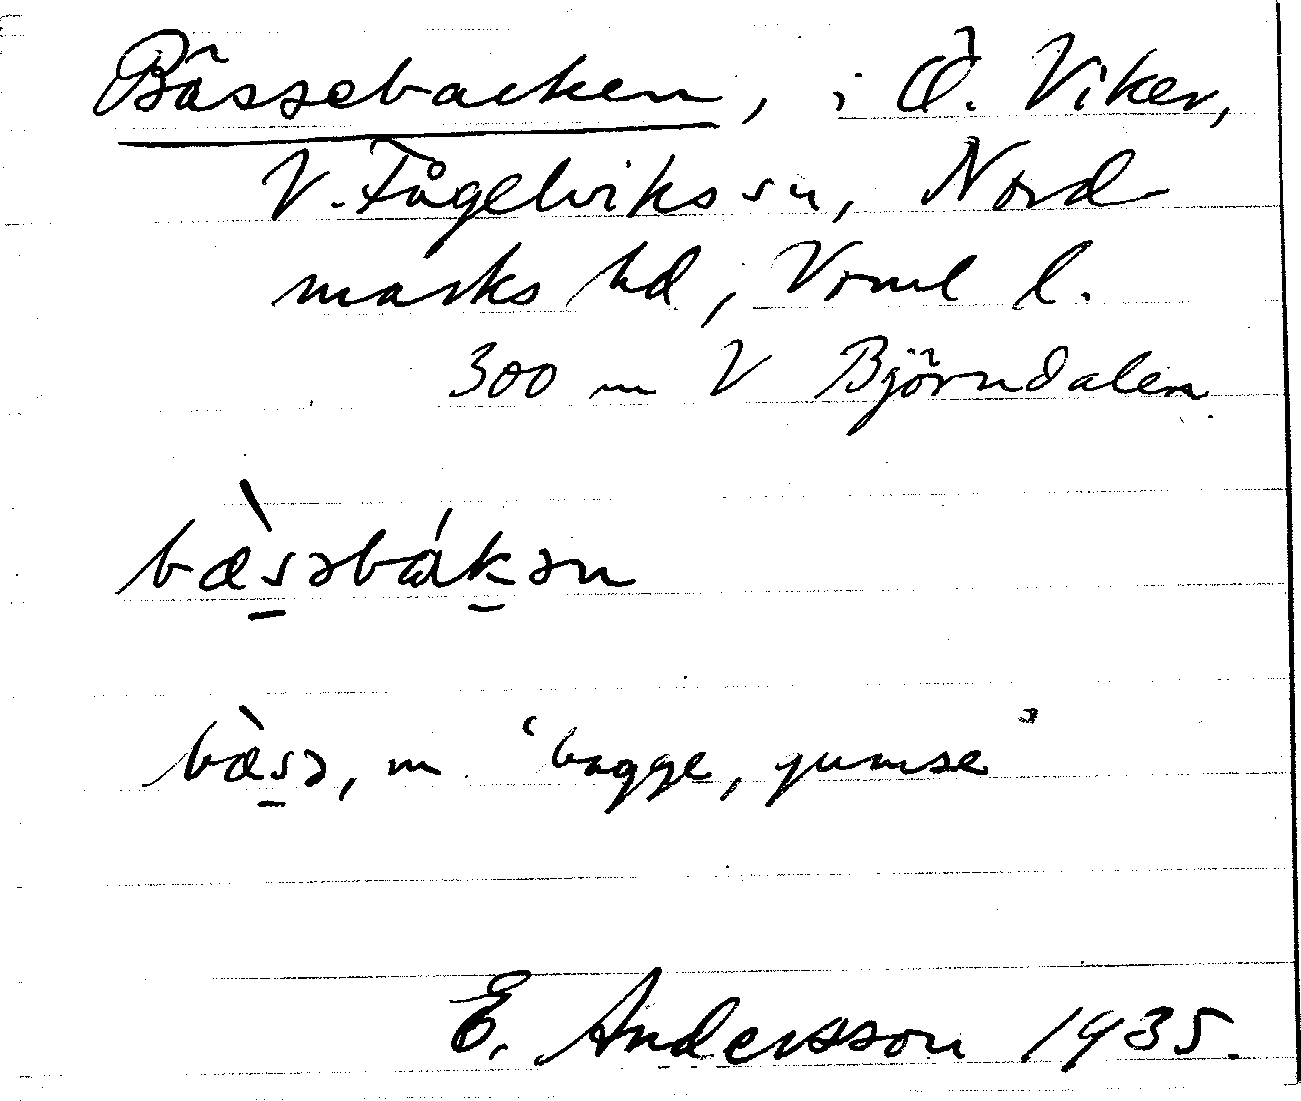 Bässebacken, i Ö. Viker,
V. Fågelviks sn, Nord
marks hd, Vrml l.
300 m V Björndalen
bæ̀s̠əbák̠ən
bæ̀s̠ə, m. ‘bagge, gumse’
E. Andersson 1935.